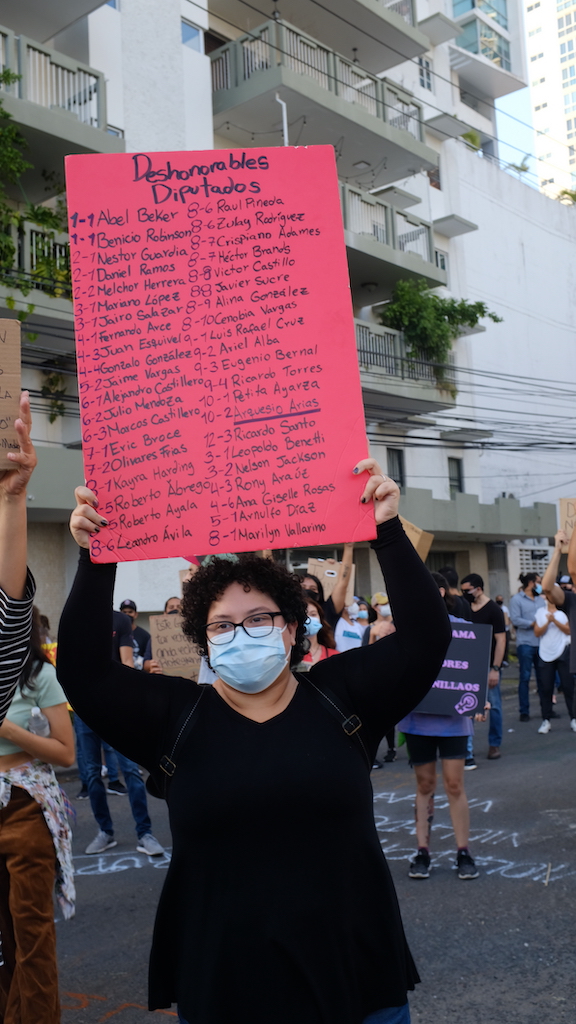 Deshonorables
Diputados
1-1 Abel Beker
1-1 Benicio Robinson
2-1 Nestor Guardia
2-1 Daniel Ramos
2-2 Melchor Herrera
3-1 Mariano López
3-1 Jairo Salazar
4-1 Fernando Arce
4-3 Juan Esquivel
4-4 Gonzalo González
5-2 Jaime Vargas
6-1 Alejandro Castillero
6-2 Julio Mendoza
6-3 Marcos Castillero
7-1 Eric Broce
7-2 Olivares Frías
-1 Kayra Harding
-5 Roberto Abrego
-5 Roberto Ayala
8-6 Leandro Ávila
8-6 Raul Pineda
8-6 Zulay Rodríguez
8-7 Crispiano Adames
8-7 Héctor Brands
8-8 Víctor Castillo
8-8 Javier Sucre
8-9 Alina González
8-10 Cenobia Vargas
9-1 Luis Rafael Cruz
9-2 Ariel Alba
9-3 Eugenio Bernal
9-4 Ricardo Torres
10-1 Petita Ayarza
10-2 Arquesio Arias
12-3 Ricardo Santo
3-1 Leopoldo Benetti
3-2 Nelson Jackson
4-3 Rony Araúz
4-6 Ana Giselle Rosas
5-1 Arnulfo Díaz
8-1 Marilyn Vallarino